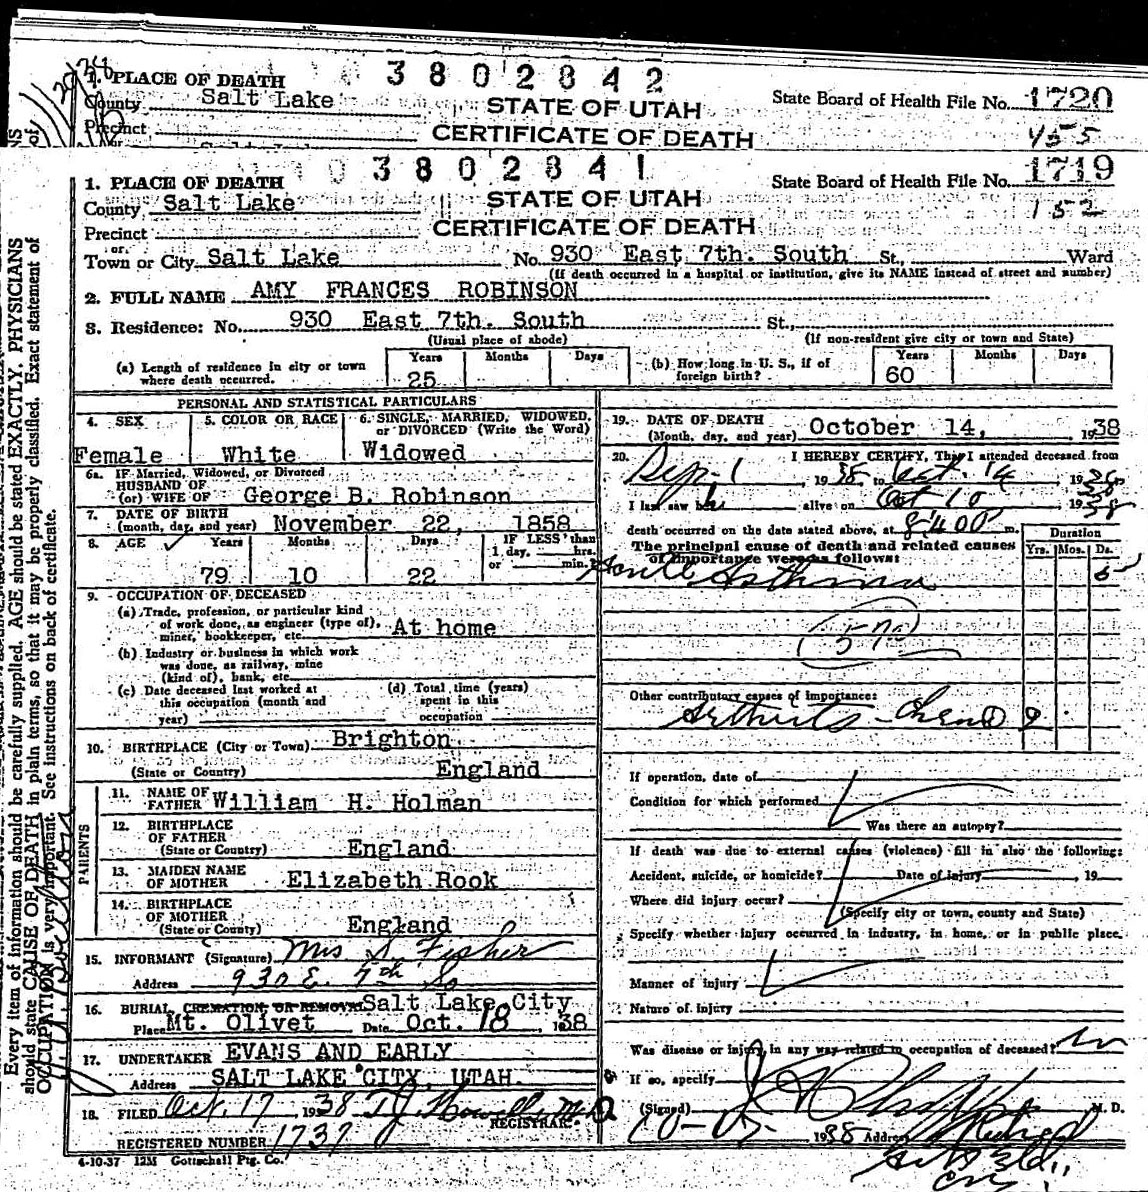 3802842
1. PLACE OF DEATH
County Salt Lake
STATE OF UTAH
State Board of Health File No. 1720
Precinct
CERTIFICATE OF DEATH
455
3802841
1. PLACE OF DEATH
STATE OF UTAH
State Board of Health File No. 1719
County Salt Lake
152
Precinct
CERTIFICATE OF DEATH
or
Town or City Salt Lake No. 930 East 7th. South St., Ward
(If death occurred in a hospital or institution, give its NAME instead of street and number)
2. FULL NAME AMY FRANCES ROBINSON
3. Residence: No. 930 East 7th. South St.,
(Usual place of abode) (If non-resident give city or town and State)
(a) Length of residence in city or town where death occurred. Years 25 Months Days
(b) How long in U. S., if of foreign birth? Years 60 Months Days
PERSONAL AND STATISTICAL PARTICULARS
4. SEX
Female
5. COLOR OR RACE
White
6. SINGLE, MARRIED, WIDOWED, or DIVORCED (Write the Word)
Widowed
6a. IF Married, Widowed, or Divorced
HUSBAND OF
(or) WIFE OF George B. Robinson
7. DATE OF BIRTH
(month, day, and year) November 22, 1858
8. AGE Years 79 Months 10 Days 22 IF LESS than 1 day, hrs. or min.
9. OCCUPATION OF DECEASED
(a) Trade, profession, or particular kind
of work done, as engineer (type of),
miner, bookkeeper, etc. At home
(b) Industry or business in which work
was done, as railway, mine
(kind of), bank, etc.
(c) Date deceased last worked at
this occupation (month and
year)
(d) Total time (years)
spent in this
occupation
10. BIRTHPLACE (City or Town) Brighton
(State or Country) England
PARENTS
11. NAME OF
FATHER William H. Holman
12. BIRTHPLACE
OF FATHER
(State or Country) England
13. MAIDEN NAME
OF MOTHER Elizabeth Rook
14. BIRTHPLACE
OF MOTHER
(State or Country) England
15. INFORMANT (Signature) Mrs S. Fisher
Address 930 E. 7th So
16. BURIAL, CREMATION OR REMOVAL Salt Lake City
Place Mt. Olivet Date Oct. 18, 1938
17. UNDERTAKER EVANS AND EARLY
Address SALT LAKE CITY, UTAH.
18. FILED Oct. 17 1938 T J Howells M.D.
REGISTRAR.
REGISTERED NUMBER 1737
4-10-37 12M Gottschall Ptg. Co.
19. DATE OF DEATH
(Month, day, and year) October 14, 1938
20. I HEREBY CERTIFY, That I attended deceased from
Sep. 1, 1938 to Oct. 14 1938
I last saw her alive on Oct 10 1938
death occurred on the date stated above, at m.
Duration
Yrs. Mos. Ds.
The principal cause of death and related causes
of importance were as follows:
Asthma
Other contributory causes of importance:
Arthritis
If operation, date of
Condition for which performed
Was there an autopsy?
If death was due to external causes (violence) fill in also the following:
Accident, suicide, or homicide? Date of injury 19
Where did injury occur?
(Specify city or town, county and State)
Specify whether injury occurred in industry, in home, or in public place.
Manner of injury
Nature of injury
Was disease or injury in any way related to occupation of deceased? No
If so, specify
(Signed) M. D.
1938 Address
Every item of information should be carefully supplied. AGE should be stated EXACTLY. PHYSICIANS
should state CAUSE OF DEATH in plain terms, so that it may be properly classified. Exact statement of
OCCUPATION is very important. See instructions on back of certificate.